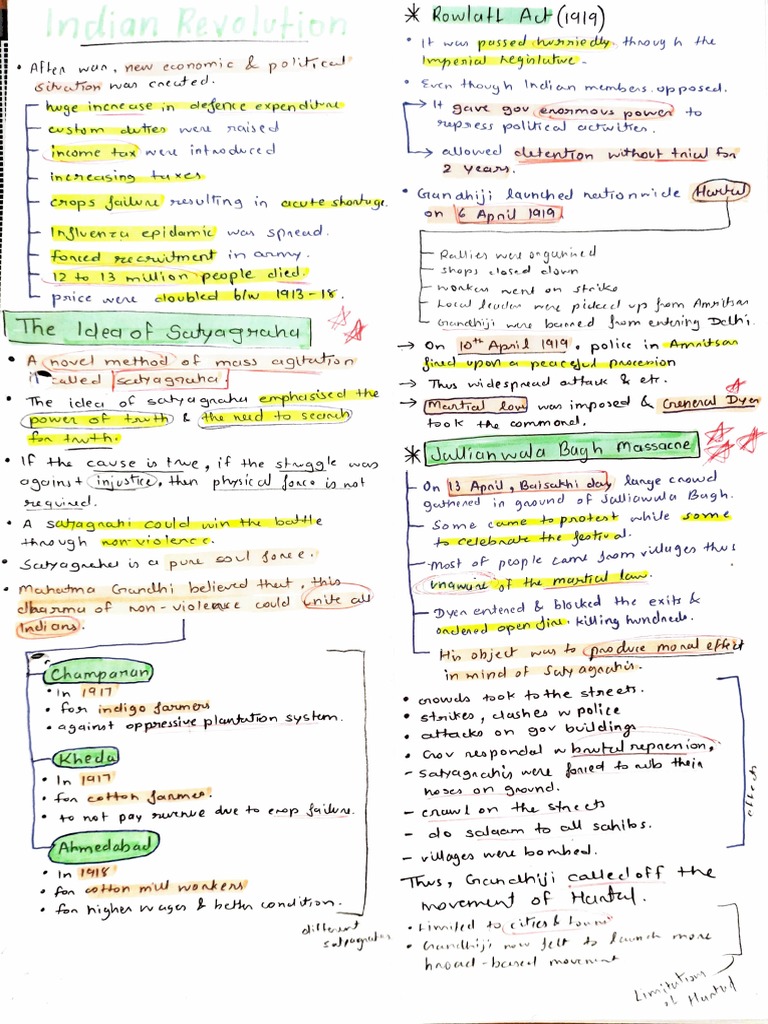 Indian Revolution
• After war, new economic & political
situation was created.
huge increase in defence expenditure
custom duties were raised
income tax were introduced
increasing taxes
crops failure resulting in acute shortage.
Influenza epidemic was spread.
forced recruitment in army.
12 to 13 million people died.
price were doubled b/w 1913-18.
The Idea of Satyagraha
• A novel method of mass agitation
is called satyagraha.
• The idea of satyagraha emphasised the
power of truth & the need to search
for truth.
• If the cause is true, if the struggle was
against injustice, then physical force is not
required.
• A satyagrahi could win the battle
through non-violence.
• Satyagraha is a pure soul force.
• Mahatma Gandhi believed that, this
dharma of non-violence could unite all
Indians.
Champaran
• In 1917
• for indigo farmers
• against oppressive plantation system.
Kheda
• In 1917
• for cotton farmer.
• to not pay revenue due to crop failure.
Ahmedabad
• In 1918
• for cotton mill workers
• for higher wages & better condition.
different
satyagrahas
* Rowlatt Act (1919)
• It was passed hurriedly through the
Imperial legislative.
• Even though Indian members opposed.
→ It gave gov enormous power to
repress political activities.
→ allowed detention without trial for
2 years.
• Gandhiji launched nationwide Hartal
on 6 April 1919
Rallies were organised
shops closed down
workers went on strike
Local leader were picked up from Amritsar
Gandhiji were banned from entering Delhi.
→ On 10th April 1919, police in Amritsar
fired upon a peaceful procession
→ Thus widespread attack & etc.
→ Martial law was imposed & General Dyer
took the command.
* Jallianwala Bagh Massacre
On 13 April, Baisakhi day large crowd
gathered in ground of Jalliawula Bagh.
Some came to protest while some
to celebrate the festival.
Most of people came from villages thus
unaware of the martial law.
Dyer entered & blocked the exits &
ordered open fire, killing hundreds.
His object was to produce moral effect
in mind of satyagrahis.
• crowds took to the streets.
• strikes, clashes w police
• attacks on gov buildings
• Gov responded w brutal repression,
- satyagrahis were forced to rub their
noses on ground.
- crawl on the streets
- do salaam to all sahibs.
- villages were bombed.
effects
Thus, Gandhiji called off the
movement of Hartal.
• Limited to cities & towns
• Gandhiji now felt to launch more
broad-based movement
Limitations
of Hartal